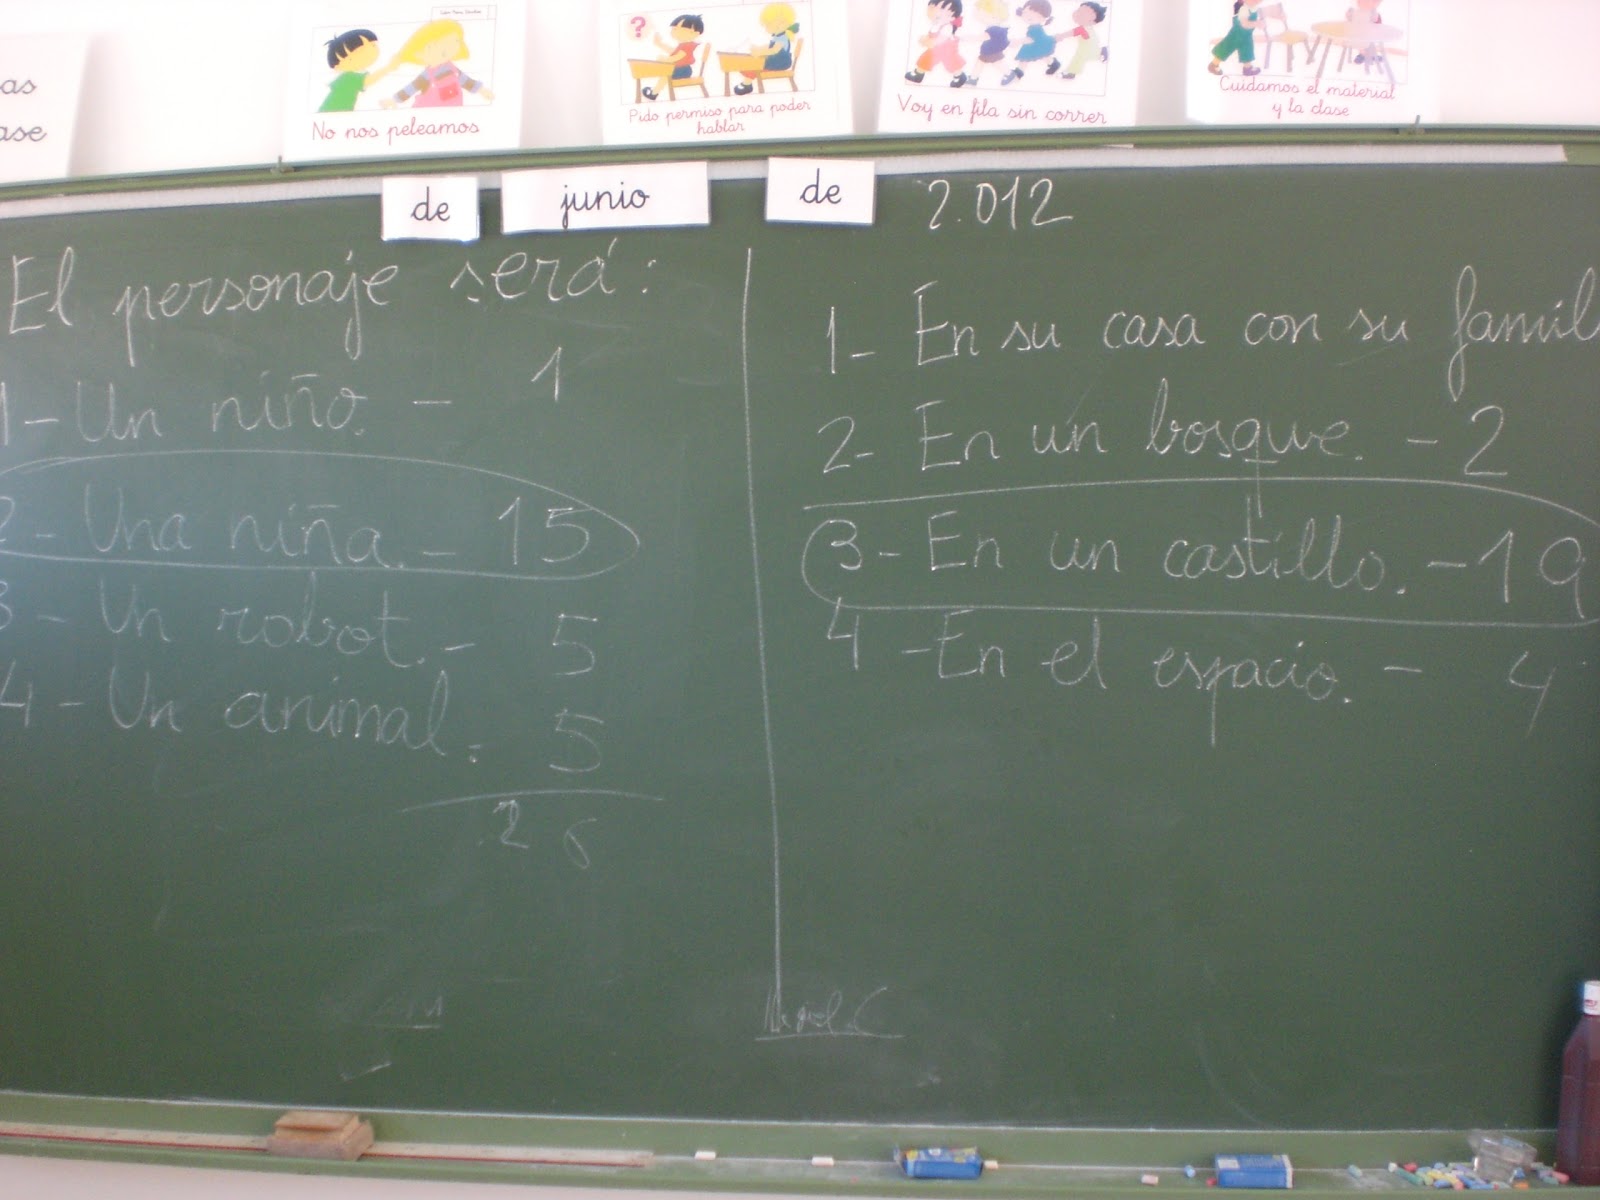 as
ase
No nos peleamos
Pido permiso para poder
hablar
Voy en fila sin correr
Cuidamos el material
y la clase
de junio de 2.012
El personaje será:
1- Un niño. - 1
2- Una niña. - 15
3- Un robot. - 5
4- Un animal. - 5
26
1- En su casa con su famil
2- En un bosque. - 2
3- En un castillo. - 19
4 - En el espacio. - 4
Miguel C